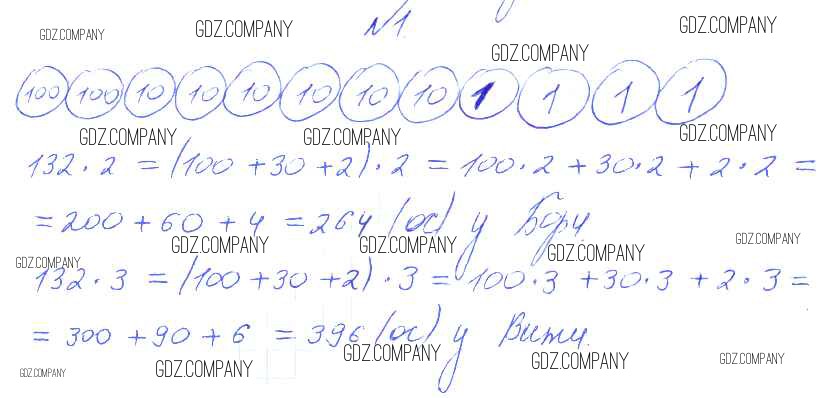 №1.
GDZ.COMPANY GDZ.COMPANY GDZ.COMPANY
GDZ.COMPANY
100 100 10 10 10 10 10 10 1 1 1 1
GDZ.COMPANY GDZ.COMPANY GDZ.COMPANY
132 · 2 = (100 + 30 + 2) · 2 = 100 · 2 + 30 · 2 + 2 · 2 =
= 200 + 60 + 4 = 264 (ос) у
GDZ.COMPANY GDZ.COMPANY GDZ.COMPANY GDZ.COMPANY
GDZ.COMPANY
132 · 3 = (100 + 30 + 2) · 3 = 100 · 3 + 30 · 3 + 2 · 3 =
= 300 + 90 + 6 = 396 (ос) у Вити.
GDZ.COMPANY GDZ.COMPANY GDZ.COMPANY GDZ.COMPANY
GDZ.COMPANY